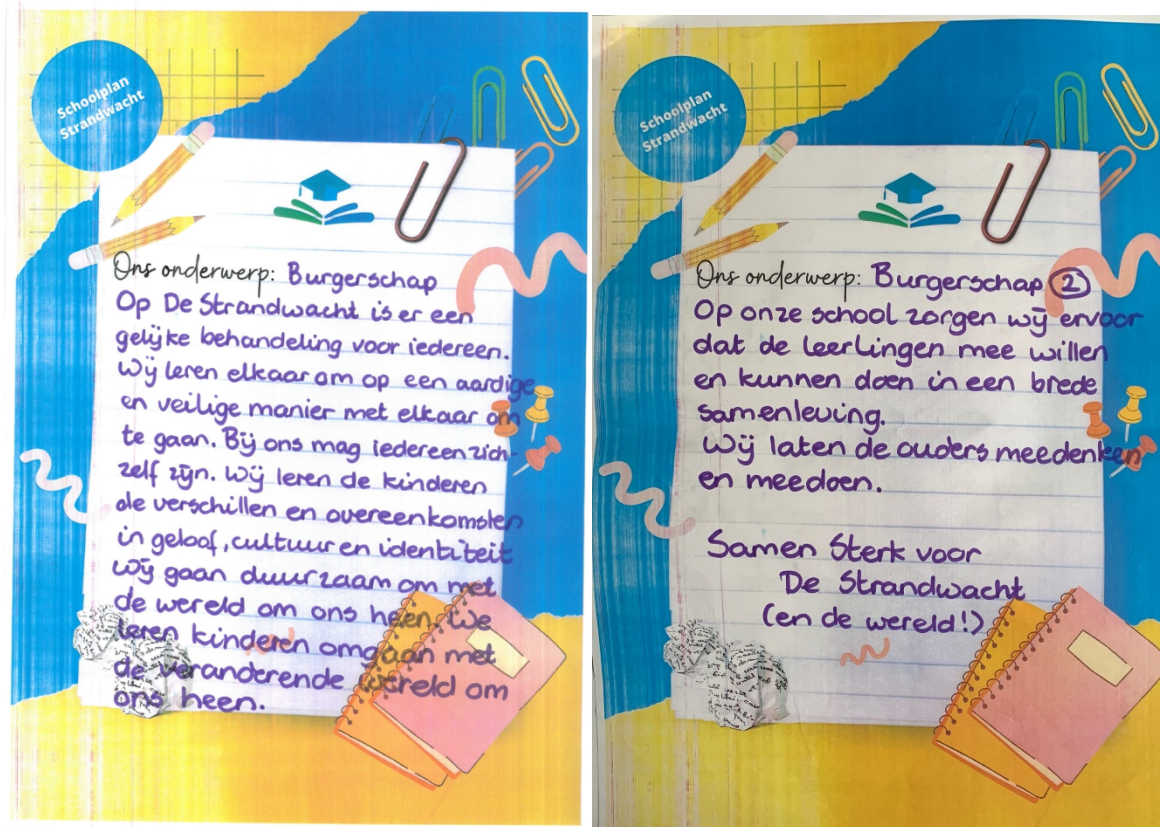 Schoolplan
Strandwacht
Ons onderwerp: Burgerschap
Op De Strandwacht is er een
gelijke behandeling voor iedereen.
Wij leren elkaar om op een aardige
en veilige manier met elkaar om
te gaan. Bij ons mag iedereen zich-
zelf zijn. Wij leren de kinderen
de verschillen en overeenkomsten
in geloof, cultuur en identiteit
Wij gaan duurzaam om met
de wereld om ons heen. We
leren kinderen omgaan met
de veranderende wereld om
ons heen.
Schoolplan
Strandwacht
Ons onderwerp: Burgerschap 2
Op onze school zorgen wij ervoor
dat de leerlingen mee willen
en kunnen doen in een brede
samenleving.
Wij laten de ouders meedenken
en meedoen.
Samen Sterk voor
De Strandwacht
(en de wereld!)